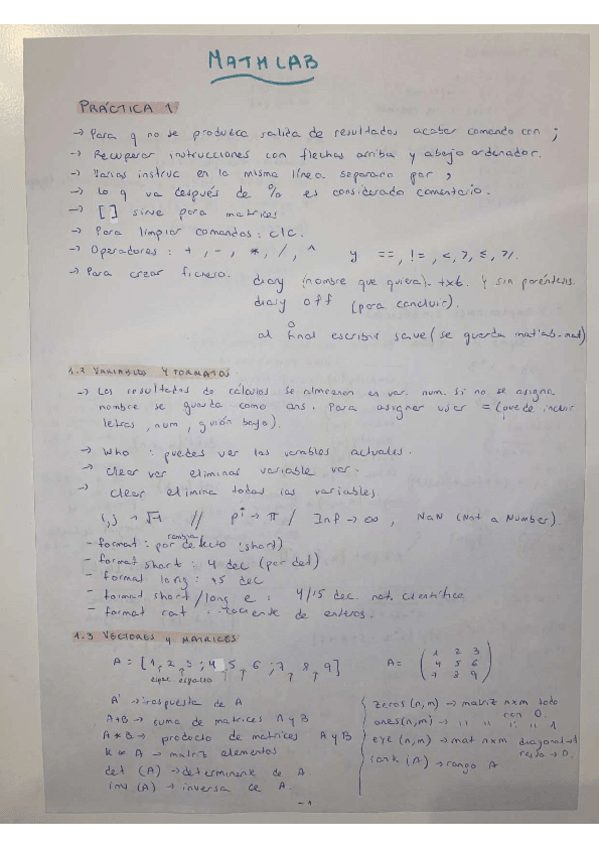 MATHLAB
PRÁCTICA 1
→ Para q no se produzca salida de resultados acabar comando con ;
→ Recuperar instrucciones con flechas arriba y abajo ordenador.
→ Varias instruc en la misma línea separado por ,
→ Lo q va después de % es considerado comentario.
→ [ ] sirve para matrices
→ Para limpiar comandos: clc.
→ Operadores: +, -, *, /, ^ y ==, !=, <, >, ≤, >/.
→ Para crear fichero. diary (nombre que quiera).txt. Y sin paréntesis
diary off (para concluir).
al final escribir save (se guarda matlab.mat)
1.2 VARIABLES Y FORMATOS
→ Los resultados de cálculos se almacenan en var. num. Si no se asigna
nombre se guarda como ans. Para asignar usar = (puede incluir
letras, num, guión bajo).
→ Who : puedes ver las variables actuales.
→ clear var eliminas variable var.
→ clear elimina todas las variables
i,j → √-1 // pi → π / Inf → ∞, NaN (Not a Number).
- format : por defecto (short)
- format short : 4 dec (por def)
- format long : 15 dec
- format short/long e : 4/15 dec. not. científica
- format rat : cociente de enteros.
1.3 VECTORES Y MATRICES
A = [1, 2, 3 ; 4 5, 6 ; 7, 8, 9] A = ( 1 2 3
espacio 4 5 6
7 8 9 )
A' → traspuesta de A
A+B → suma de matrices A y B
A * B → producto de matrices A y B
k * A → matriz elementos
det (A) → determinante de A
inv (A) → inversa de A.
zeros (n,m) → matriz nxm todo
con 0.
ones (n,m) → " " " " 1
eye (n,m) → mat nxm diagonal → 1
resto → 0.
rank (A) → rango A
- 1